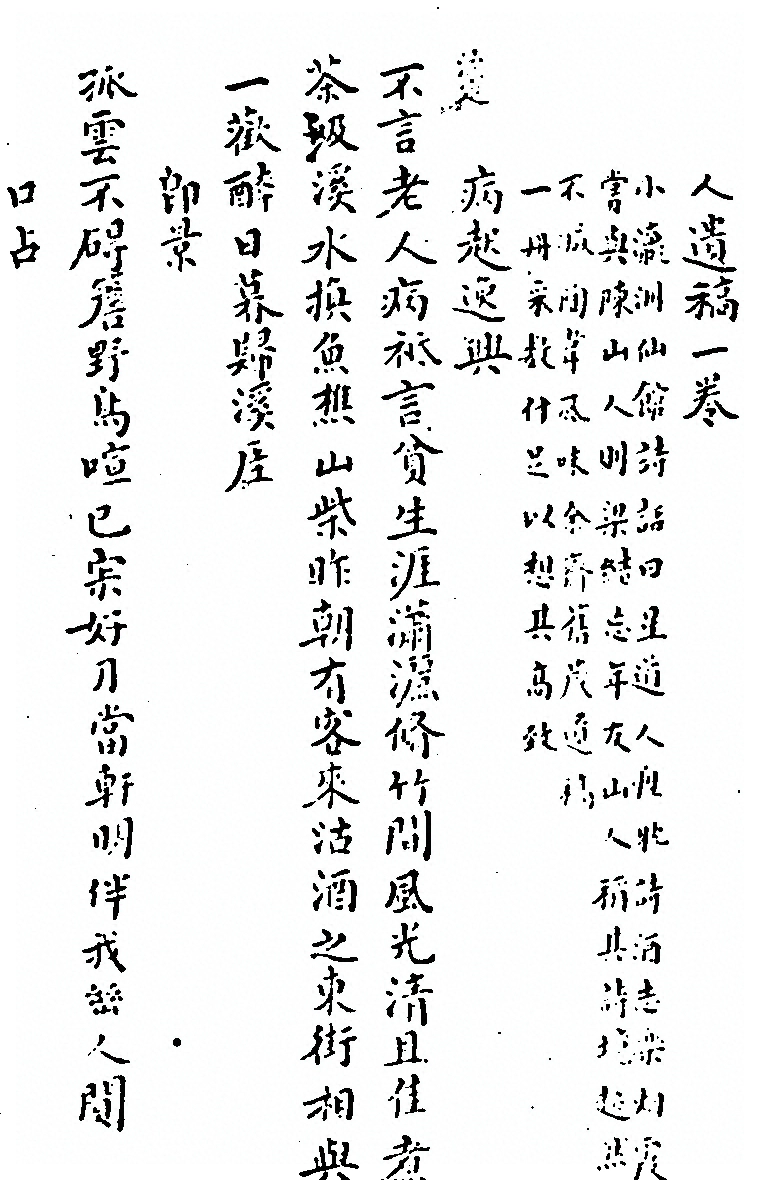 人遺稿一卷
小瀛洲仙館詩話曰星道人 詩酒志樂烟霞
嘗與陳山人明梁結忘年友山人稱其詩境超然
不減陶韋風味余齋舊茂遺稿
一冊采數什足以想其高致
病起遣興
不言老人病祗言貧生涯瀟灑脩竹間風光清且佳煮
茶級溪水換魚樵山柴昨朝有客來沽酒之東街相與
一歡醉日暮歸溪厓
即景
孤雲不碍簷野鳥喧已寂好月當軒明伴我 人閒
口占